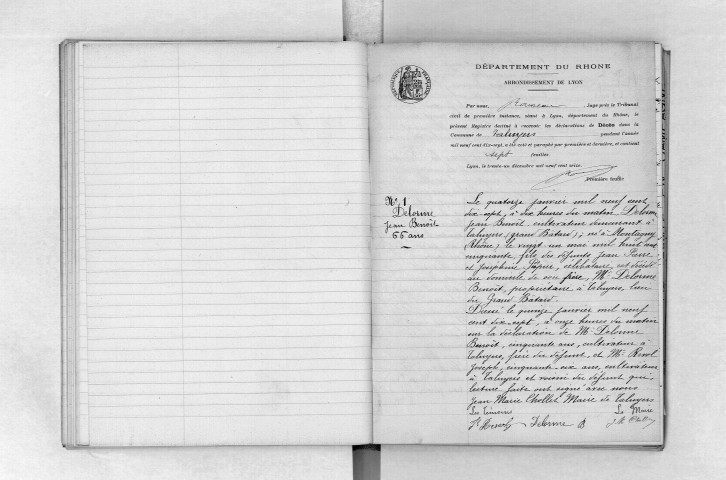 DÉPARTEMENT DU RHONE
ARRONDISSEMENT DE LYON
Par nous, Juge près le Tribunal
civil de première instance, séant à Lyon, département du Rhône, le
présent Registre destiné à recevoir les déclarations de Décès dans la
Commune de Taluyers pendant l'année
mil neuf cent dix-sept, a été coté et paraphé par première et dernière, et contient
sept feuilles.
Lyon, le trente-un décembre mil neuf cent seize.
Première feuille
N° 1
Delorme
Jean Benoît
66 ans
Le quatorze janvier mil neuf cent
dix-sept, à dix heures du matin, Delorme
Jean Benoît, cultivateur demeurant à
Taluyers (grand Batard), né à Montagny
(Rhône) le vingt un mai mil huit cent
cinquante, fils des défunts Jean Pierre
et Joséphine célibataire, est décédé
au domicile de son frère, Mr Delorme
Benoît, propriétaire à Taluyers, lieu
du Grand Bâtard.
Dressé le quinze janvier mil neuf
cent dix-sept, à onze heures du matin
sur la déclaration de Mr Delorme
Benoît, cinquante ans, cultivateur à
Taluyers, frère du défunt et Mr
Joseph, cinquante-six ans, cultivateur
à Taluyers et voisin du défunt qui,
lecture faite ont signé avec nous
Jean Marie Chollet Maire de Taluyers
Les témoins Le Maire
Delorme B J. M. Chollet